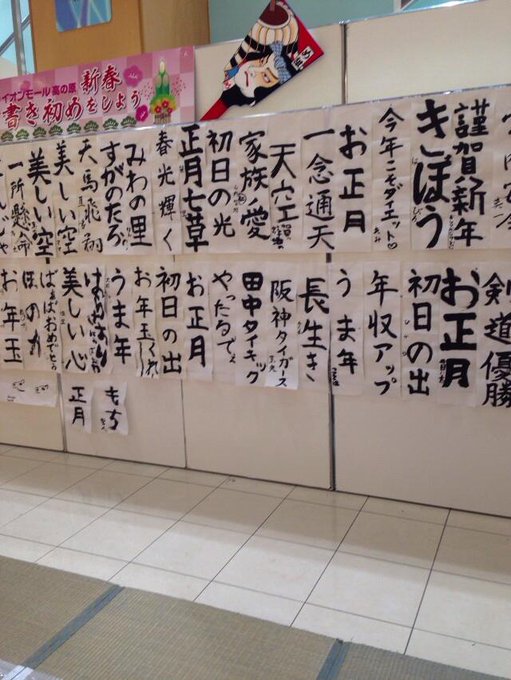 イオンモール高の原 新春
書き初めをしよう
謹賀新年
きぼう
今年こそダイエット♡
お正月
一念通天
天空
家族の愛
初日の光
正月七草
春光輝く
みわの里
すがのたろ
天馬飛翔
美しい空
美しい空
一所懸命
剣道優勝
お正月
初日の出
年収アップ
うま年
長生き
阪神タイガース
田中タイキック
やったるでぇ
お正月
初日の出
お年玉くれ
うま年
美しい心
ばぁばおめでとう
ほのか
お年玉
もち
正月